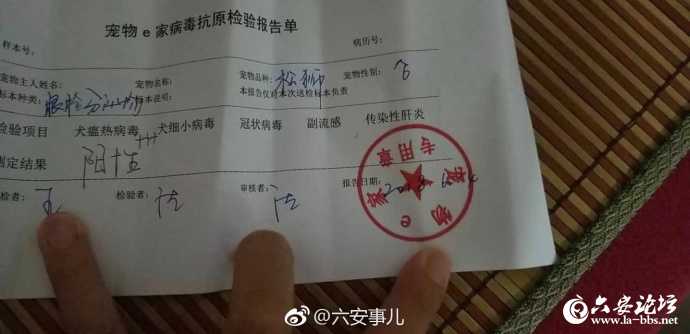 宠物e家病毒抗原检验报告单
样本号： 病历号：
宠物主人姓名： 宠物名称： 宠物品种：松狮 宠物性别：
标本种类：眼睑分泌物 标本说明： 本报告仅对本次送检标本负责
检验项目 犬瘟热病毒 +++ 犬细小病毒 冠状病毒 副流感 传染性肝炎
测定结果 阳性
检者： 王 检验者： 审核者： 报告日期：
物e家
专用章
@六安事儿
六安论坛
www.la-bbs.net